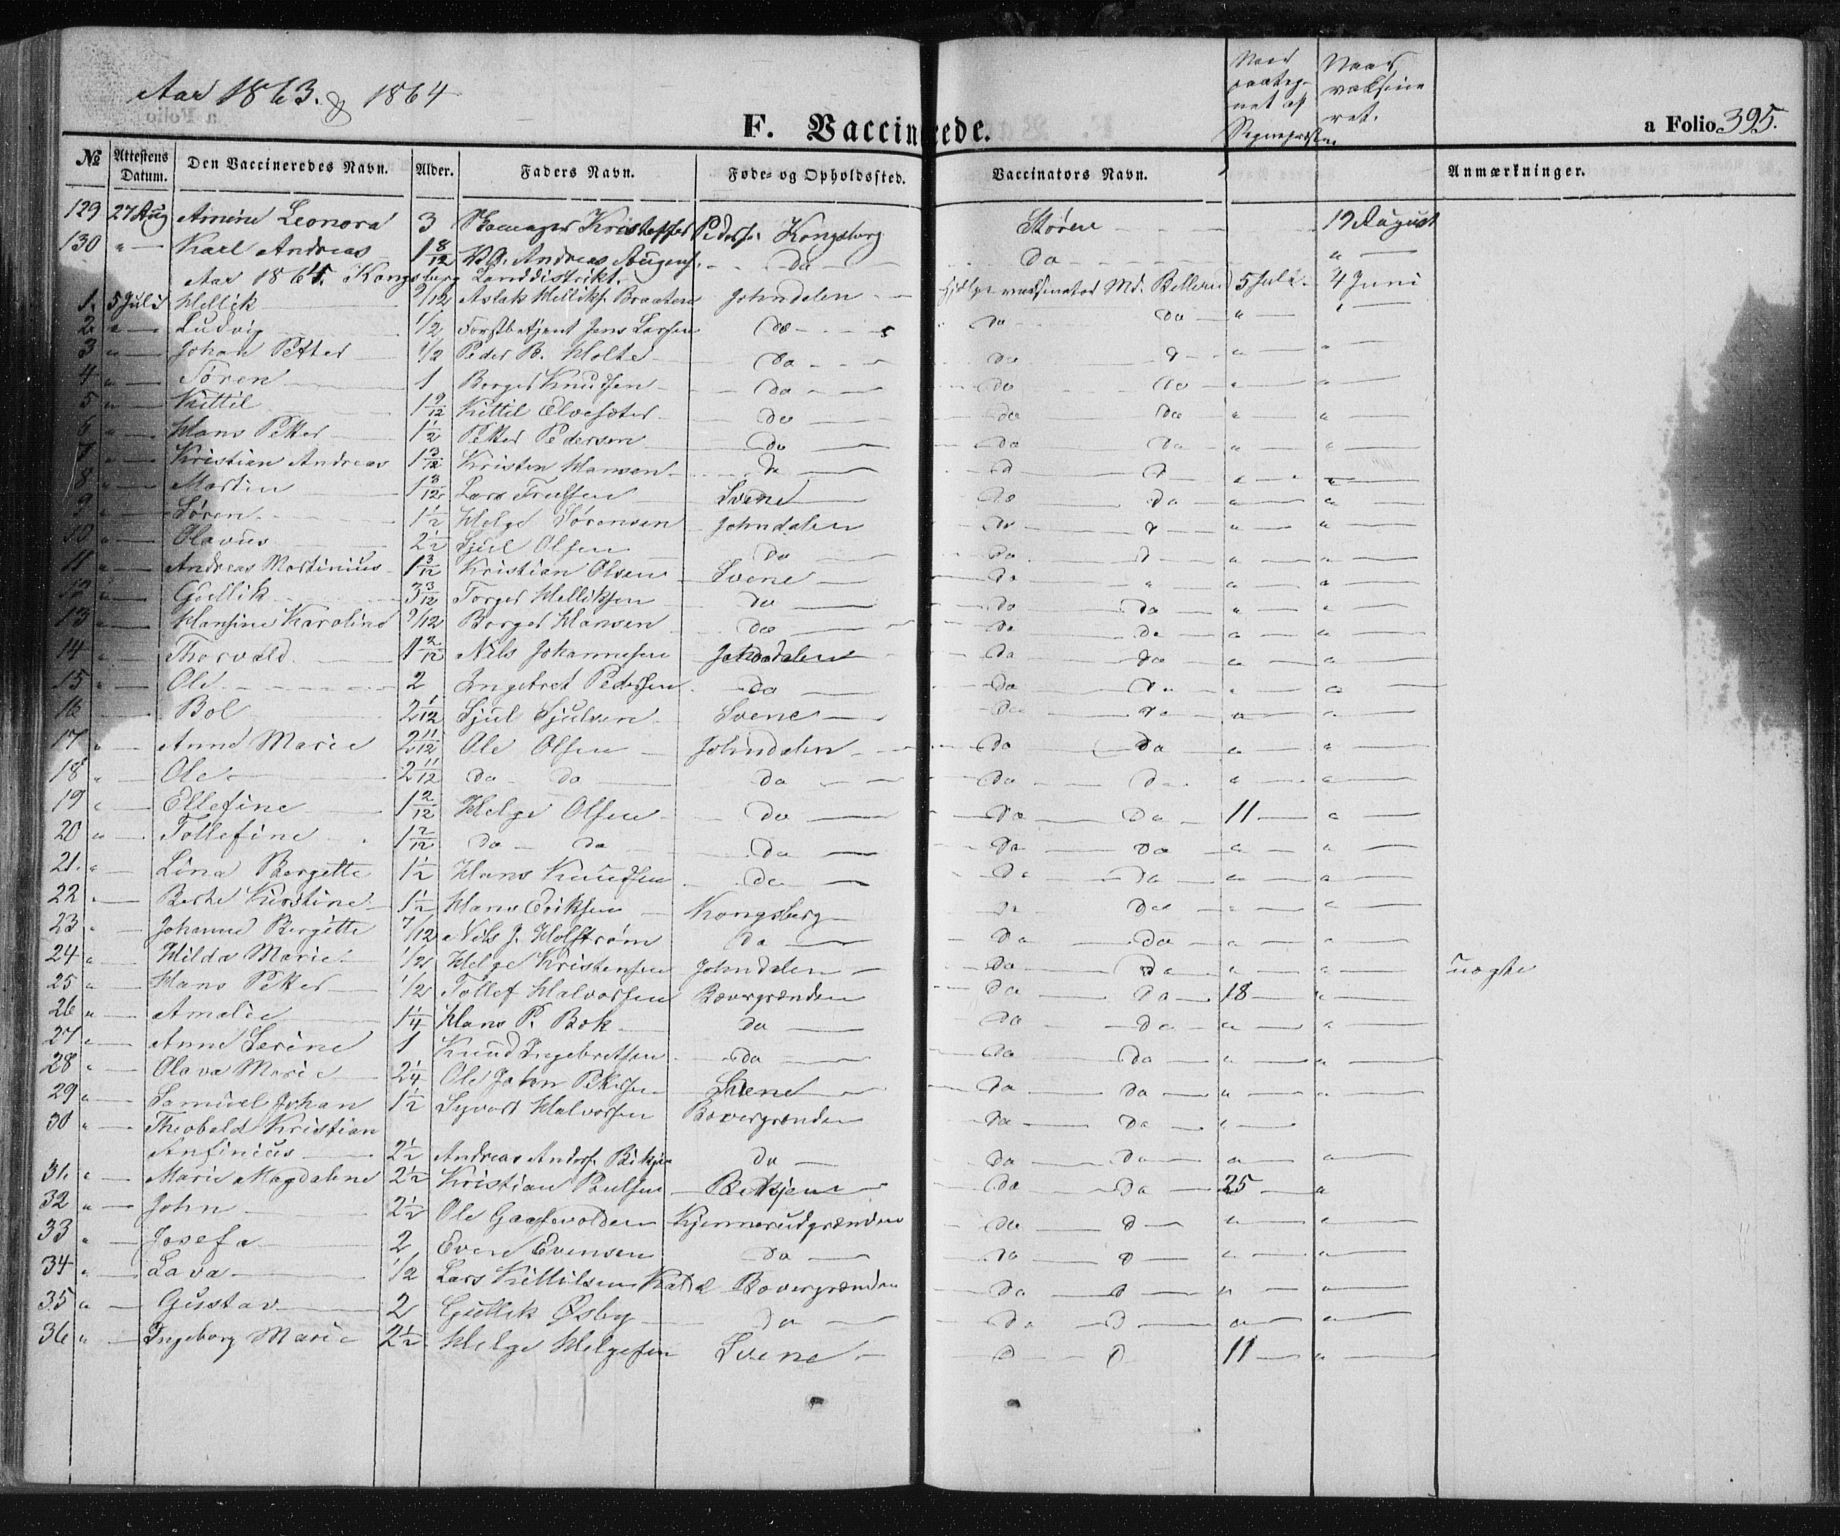 Aar 1863. & 1864
F. Vaccinerede.
Naar paateg-
net af
Sognepresten
Naar
vaksine
ret.
a Folio 395.
№ Attestens Datum. Den Vaccineredes Navn. Alder. Faders Navn. Føde- og Opholdssted. Vaccinators Navn. Anmærkninger.
129 27 Aug Amine Leonora 3 Skomager Kristoffer Peders: Kongsberg Støren 19 August
130 " Karl Andreas 1 8/12 Andreas Do Do "
Aar 1864. Kongsberg Landdistrikt.
1. 5 Juli Hellik 9/12 Aslak Helliks. Braaten Johndalen Hjelpevaksinator Md. Bellerud 5 Juli 4 Juni
2. " Ludvig 1/2 Forstbetjent Jens Larsen Do Do Do " "
3 " Johan Petter 1/2 Peder B. Holte Do Do D " "
4 " Søren 1 Borger Knudsen Do Do Do " "
5 " Kittil 1 9/12 Kittil Elvesæter Do Do Do " "
6 " Hans Petter 1 1/2 Petter Pedersen Do Do Do " "
7 " Kristian Andreas 1 3/12 Kristen Hansen Do D D " "
8 " Martin 1 3/12 Lars Trulsen Svene Do Do " "
9 " Søren 1 1/2 Helge Sørensen Johndalen Do D " "
10 " Olavus 2 1/2 Sjul Olsen Do Do D " "
11 " Andreas Martinius 1 3/12 Kristian Olsen Svene Do " " "
12 " Gullik 3 3/12 Torger Helliksen Do Do Do " "
13 " Hansine Karoline 9/12 Borger Hansen Do Do Do " "
14 " Thorvald 1 2/12 Nils Johannesen Johndalen Do Do " "
15 " Ole 2 Ingebret Pedersen Do Do Do " "
16 Bol 2 1/12 Sjul Sjulsen Svene Do Do " "
17 " Anne Marie 2 11/12 Ole Olsen Johndalen Do Do " "
18 " Ole 2 11/12 Do Do Do Do Do " "
19 " Ellefine 1 2/12 Helge Olsen Do Do Do 11 "
20 " Tollefine 1 2/12 Do Do Do Do Do " "
21. " Lina Bergitte 1 1/2 Hans Knudsen Do Do Do " "
22 " Berte Kirstine 1 1/2 Hans Eriksen Kongsberg Do Do " "
23 " Johanne Bergitte 7/12 Nils J. Holstrøm Do Do Do " "
24 " Hilda Marie 1/2 Helge Kristensen Johndalen Do Do " " uægte
25 " Hans Petter 1/2 Tollef Halvorsen Bævergrænden Do Do 18 "
26 " Amalie 1 1/4 Hans P. Bok Do Do Do " "
27 " Anne Serine 1 Knud Ingebretsen Do Do Do " "
28 " Olava Marie 2 1/4 Ole John Pettersen Svene Do Do " "
29 " Samuel Johan 1 1/2 Syvert Halvorsen Bævergrænden Do Do "
30 " Theobald Kristian
Anfinius 2 1/2 Andreas Anders. Do Do Do " "
31. " Marie Magdalene 2 1/2 Kristian Do Do 25 "
32 " John 2 1/2 Ole Kjennerudgrænden Do D " "
33 " Josefa 2 Even Evensen Do Do D " "
34 " Lava 1/2 Lars Kittilsen Bævergrænden Do D " "
35 " Gustav 2 Gullik Øsby Do Do D " "
36 " Ingeborg Marie 2 1/2 Helge Helgesen Svene D D 11 "